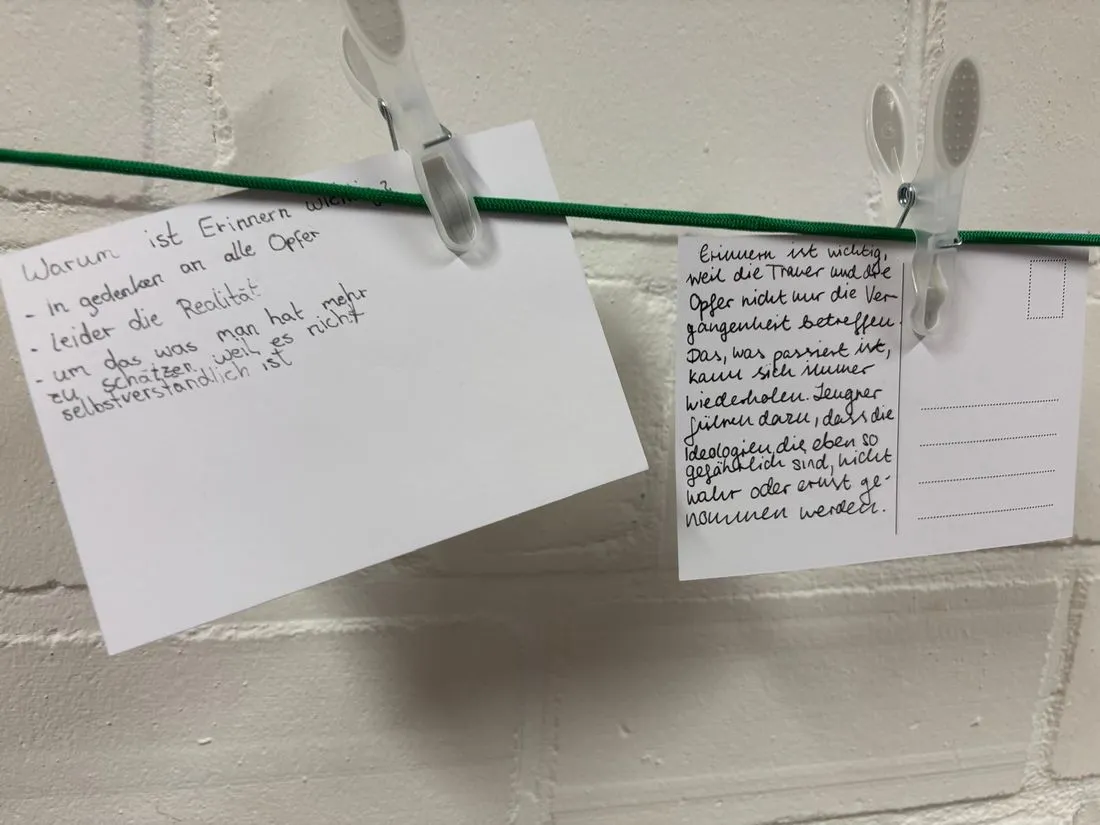 Warum ist Erinnern wichtig?
- in gedenken an alle Opfer
- leider die Realität
- um das was man hat mehr
zu schätzen weil es nicht
selbstverständlich ist
Erinnern ist wichtig,
weil die Trauer und die
Opfer nicht nur die Ver-
gangenheit betreffen.
Das, was passiert ist,
kann sich immer
wiederholen. Leugner
führen dazu, dass die
Ideologien, die eben so
gefährlich sind, nicht
wahr oder ernst ge-
nommen werden.